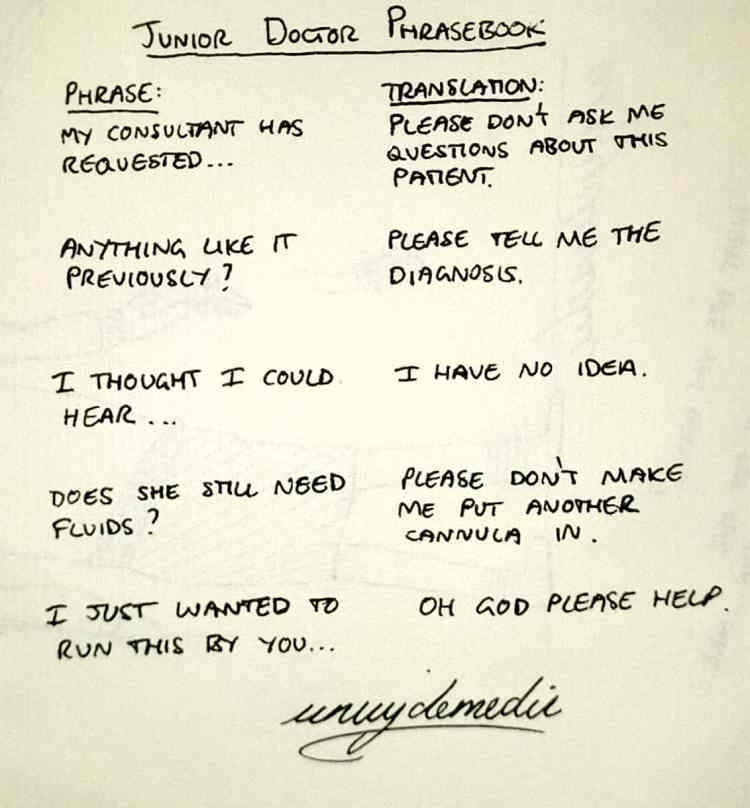 JUNIOR DOCTOR PHRASEBOOK
PHRASE:
MY CONSULTANT HAS
REQUESTED...
TRANSLATION:
PLEASE DON'T ASK ME
QUESTIONS ABOUT THIS
PATIENT.
ANYTHING LIKE IT
PREVIOUSLY?
PLEASE TELL ME THE
DIAGNOSIS.
I THOUGHT I COULD
HEAR...
I HAVE NO IDEA.
DOES SHE STILL NEED
FLUIDS?
PLEASE DON'T MAKE
ME PUT ANOTHER
CANNULA IN.
I JUST WANTED TO
RUN THIS BY YOU...
OH GOD PLEASE HELP.